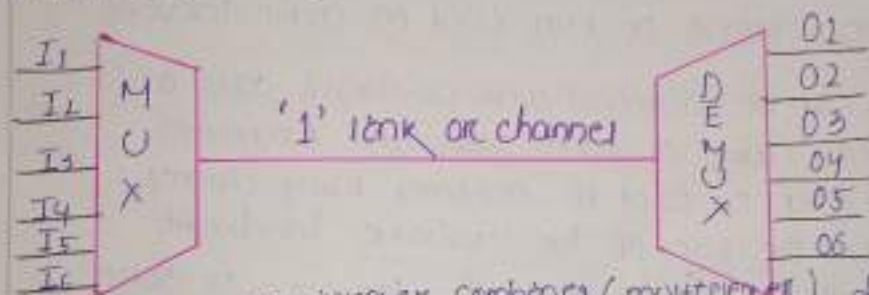 I1
I2
I3
I4
I5
I6
MUX
'1' link or channel
DEMUX
01
02
03
04
05
06
combines (multiplexer)